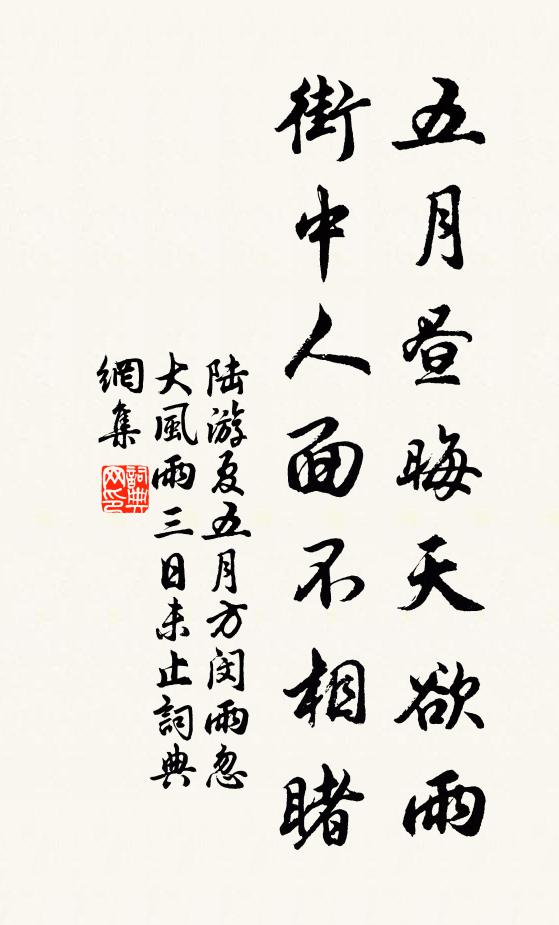 五月昼晦天欲雨
街中人面不相睹
陆游夏五月方闵雨忽
大風雨三日未止詞典
網集
詞典网印